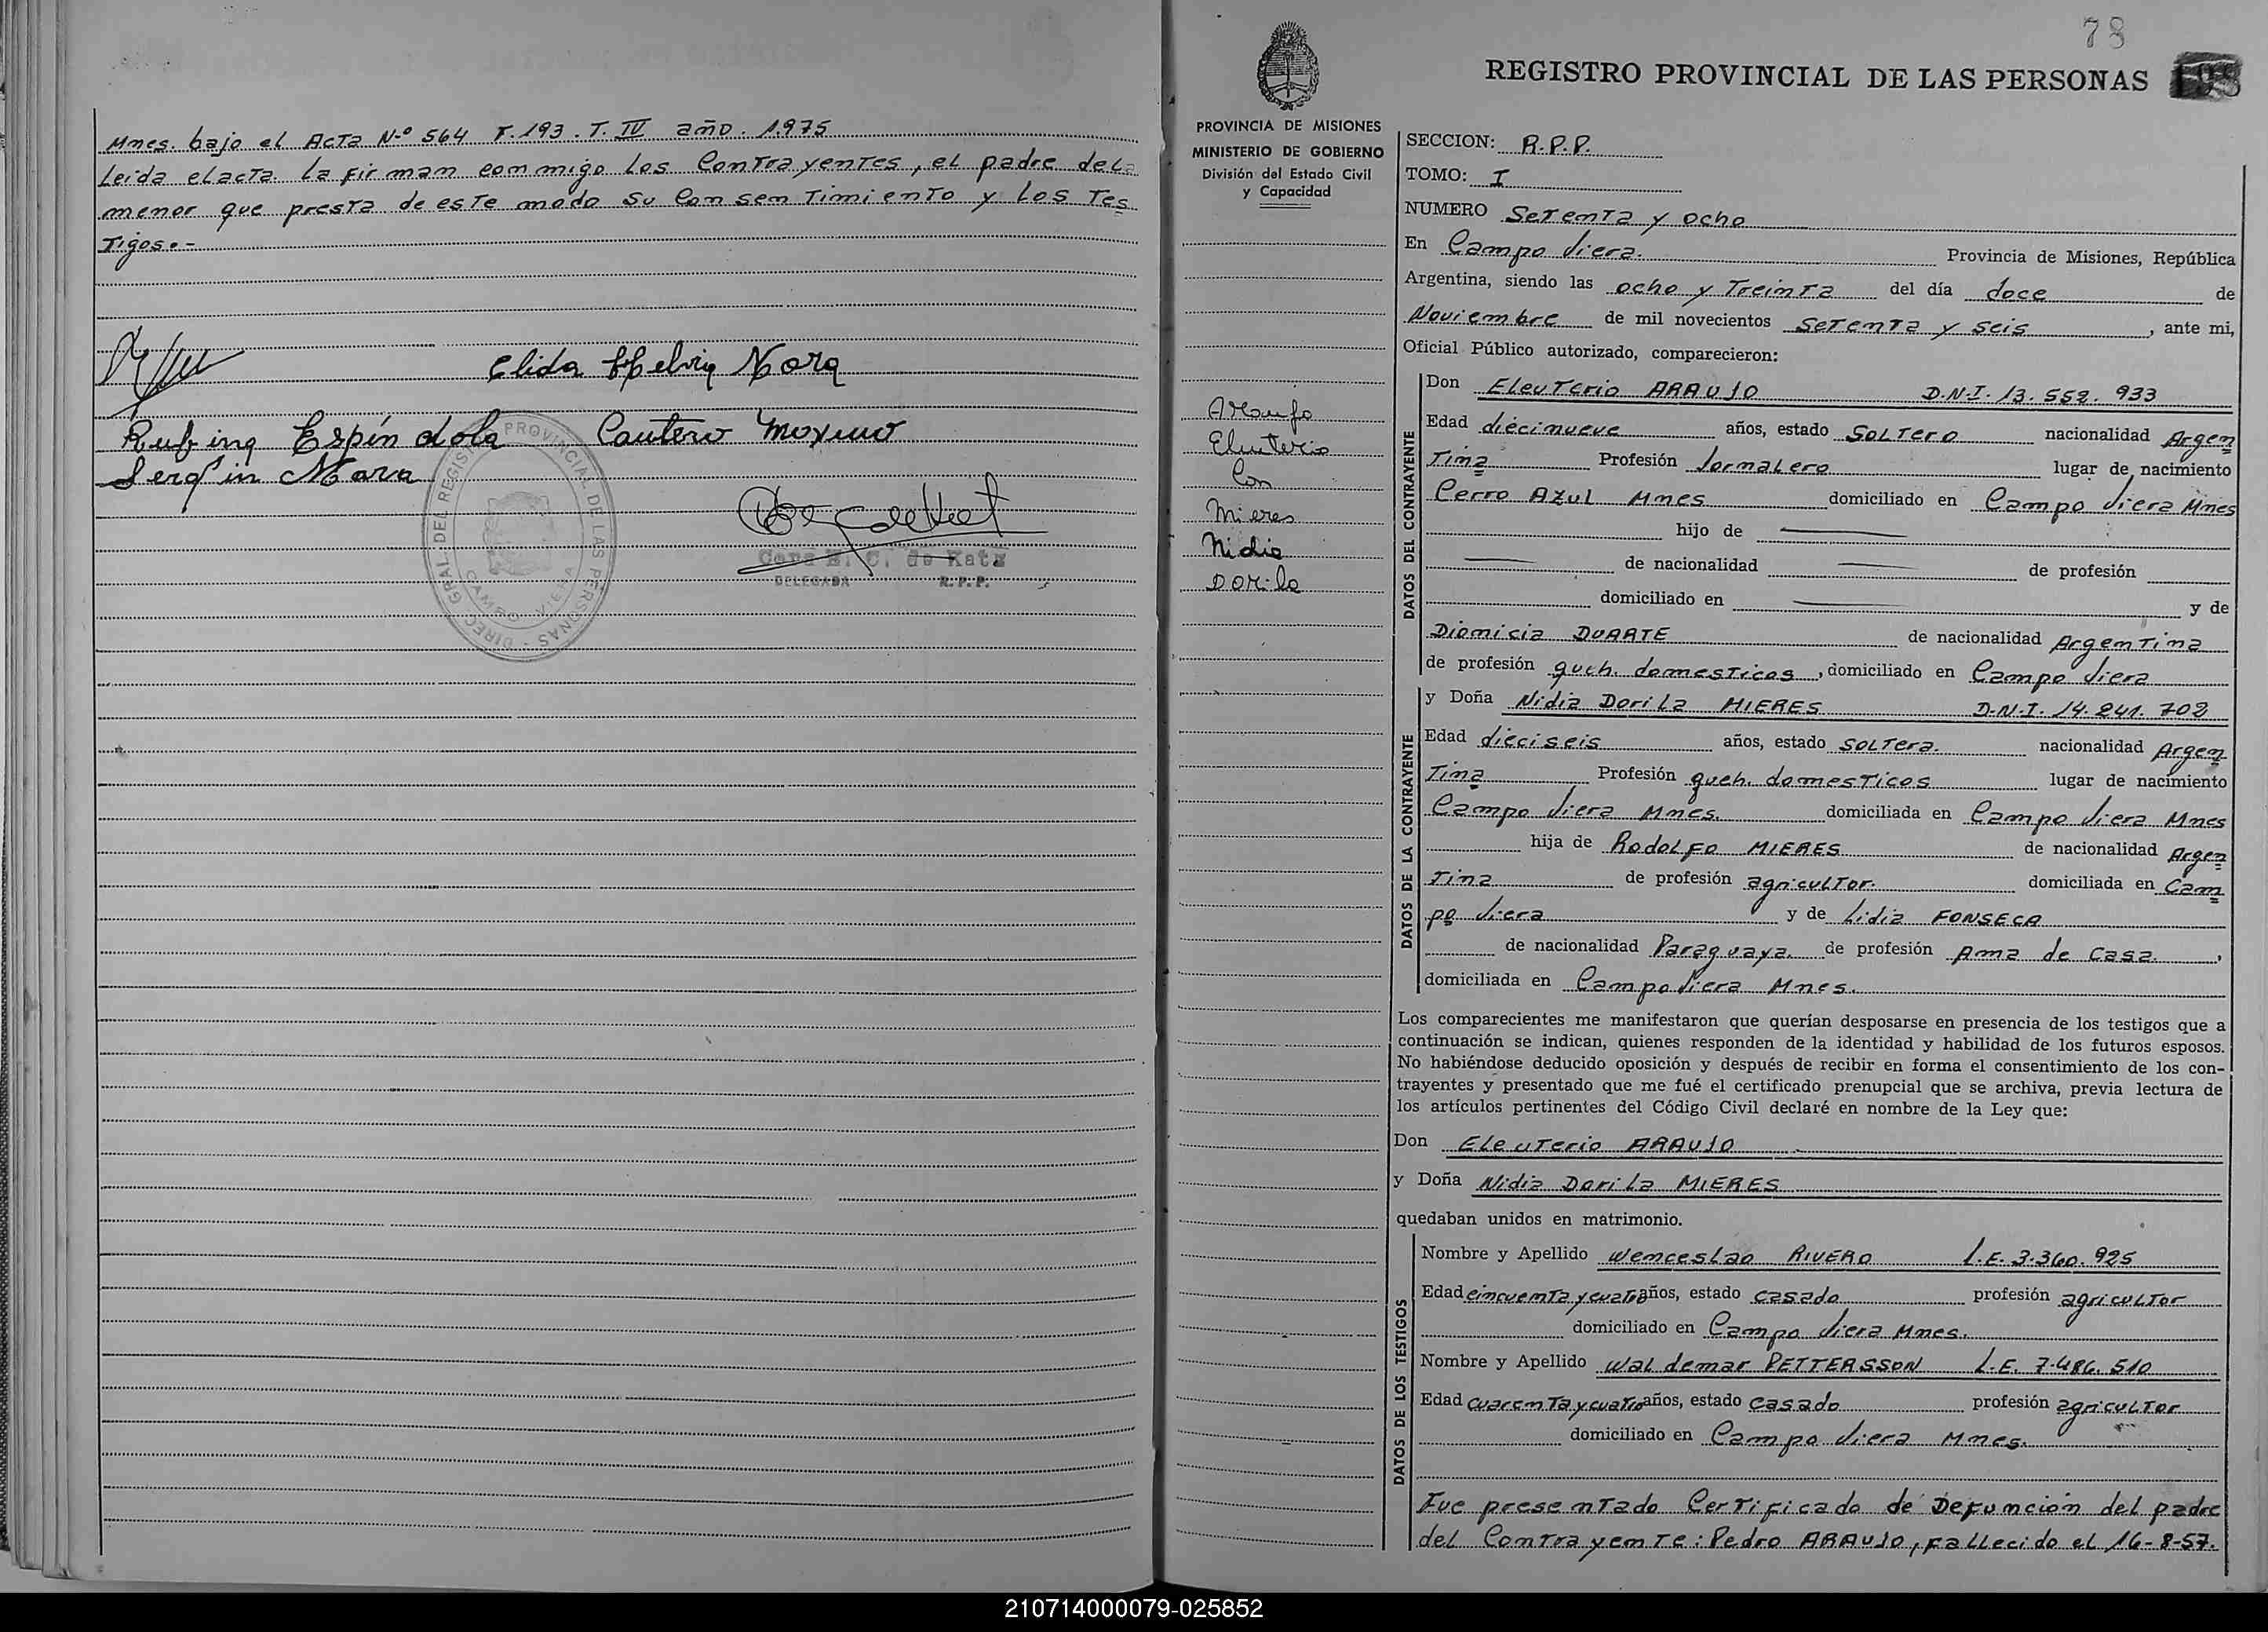 Mnes. bajo el Acta Nº 564 F. 193. T. IV año. 1.975
Leida el acta. La firman conmigo los Contrayentes, el padre de la
menor que presta de este modo su Consentimiento y los Tes
Tigos.-
Elida Helvia Nora
Rufina Espíndola Cauterio Moreno
Mara
GRAL. DEL REGISTRO PROVINCIAL DE LAS PERSONAS - DIREC
CAMPO VIERA
Cora E. C. de Katz
DELEGADA R. P. P.
78
REGISTRO PROVINCIAL DE LAS PERSONAS
PROVINCIA DE MISIONES
MINISTERIO DE GOBIERNO
División del Estado Civil
y Capacidad
Araujo
Eleuterio
Con
Mieres
Nidia
Dorila
SECCION: R.P.P.
TOMO: I
NUMERO Setenta y ocho
En Campo Viera. Provincia de Misiones, República
Argentina, siendo las ocho y Treinta del día doce de
Noviembre de mil novecientos setenta y seis, ante mi,
Oficial Público autorizado, comparecieron:
DATOS DEL CONTRAYENTE
Don Eleuterio ARAUJO D.N.I. 13.552.933
Edad diecinueve años, estado Soltero nacionalidad Argen
Tina Profesión Jornalero lugar de nacimiento
Cerro Azul Mnes domiciliado en Campo Viera Mnes
hijo de
de nacionalidad de profesión
domiciliado en y de
Dionicia DUARTE de nacionalidad Argentina
de profesión queh. domesticos, domiciliado en Campo Viera
DATOS DE LA CONTRAYENTE
y Doña Nidia Dorila MIERES D.N.I. 14.241.702
Edad dieciseis años, estado Soltera. nacionalidad Argen
Tina Profesión queh. domesticos lugar de nacimiento
Campo Viera Mnes. domiciliada en Campo Viera Mnes
hija de Rodolfo MIERES de nacionalidad Argen
Tina de profesión agricultor. domiciliada en Cam
po Viera y de Lidia FONSECA
de nacionalidad Paraguaya. de profesión Ama de Casa.,
domiciliada en Campo Viera Mnes.
Los comparecientes me manifestaron que querían desposarse en presencia de los testigos que a
continuación se indican, quienes responden de la identidad y habilidad de los futuros esposos.
No habiéndose deducido oposición y después de recibir en forma el consentimiento de los con-
trayentes y presentado que me fué el certificado prenupcial que se archiva, previa lectura de
los artículos pertinentes del Código Civil declaré en nombre de la Ley que:
Don Eleuterio ARAUJO
y Doña Nidia Dorila MIERES
quedaban unidos en matrimonio.
DATOS DE LOS TESTIGOS
Nombre y Apellido Wenceslao RIVERO L.E. 3.360.925
Edad cincuenta y cuatro años, estado casado profesión agricultor
domiciliado en Campo Viera Mnes.
Nombre y Apellido Waldemar PETTERSSON L.E. 7.486.510
Edad cuarenta y cuatro años, estado casado profesión agricultor
domiciliado en Campo Viera Mnes.
Fue presentado Certificado de Defunción del padre
del Contrayente: Pedro ARAUJO, fallecido el 16-8-57.
210714000079-025852